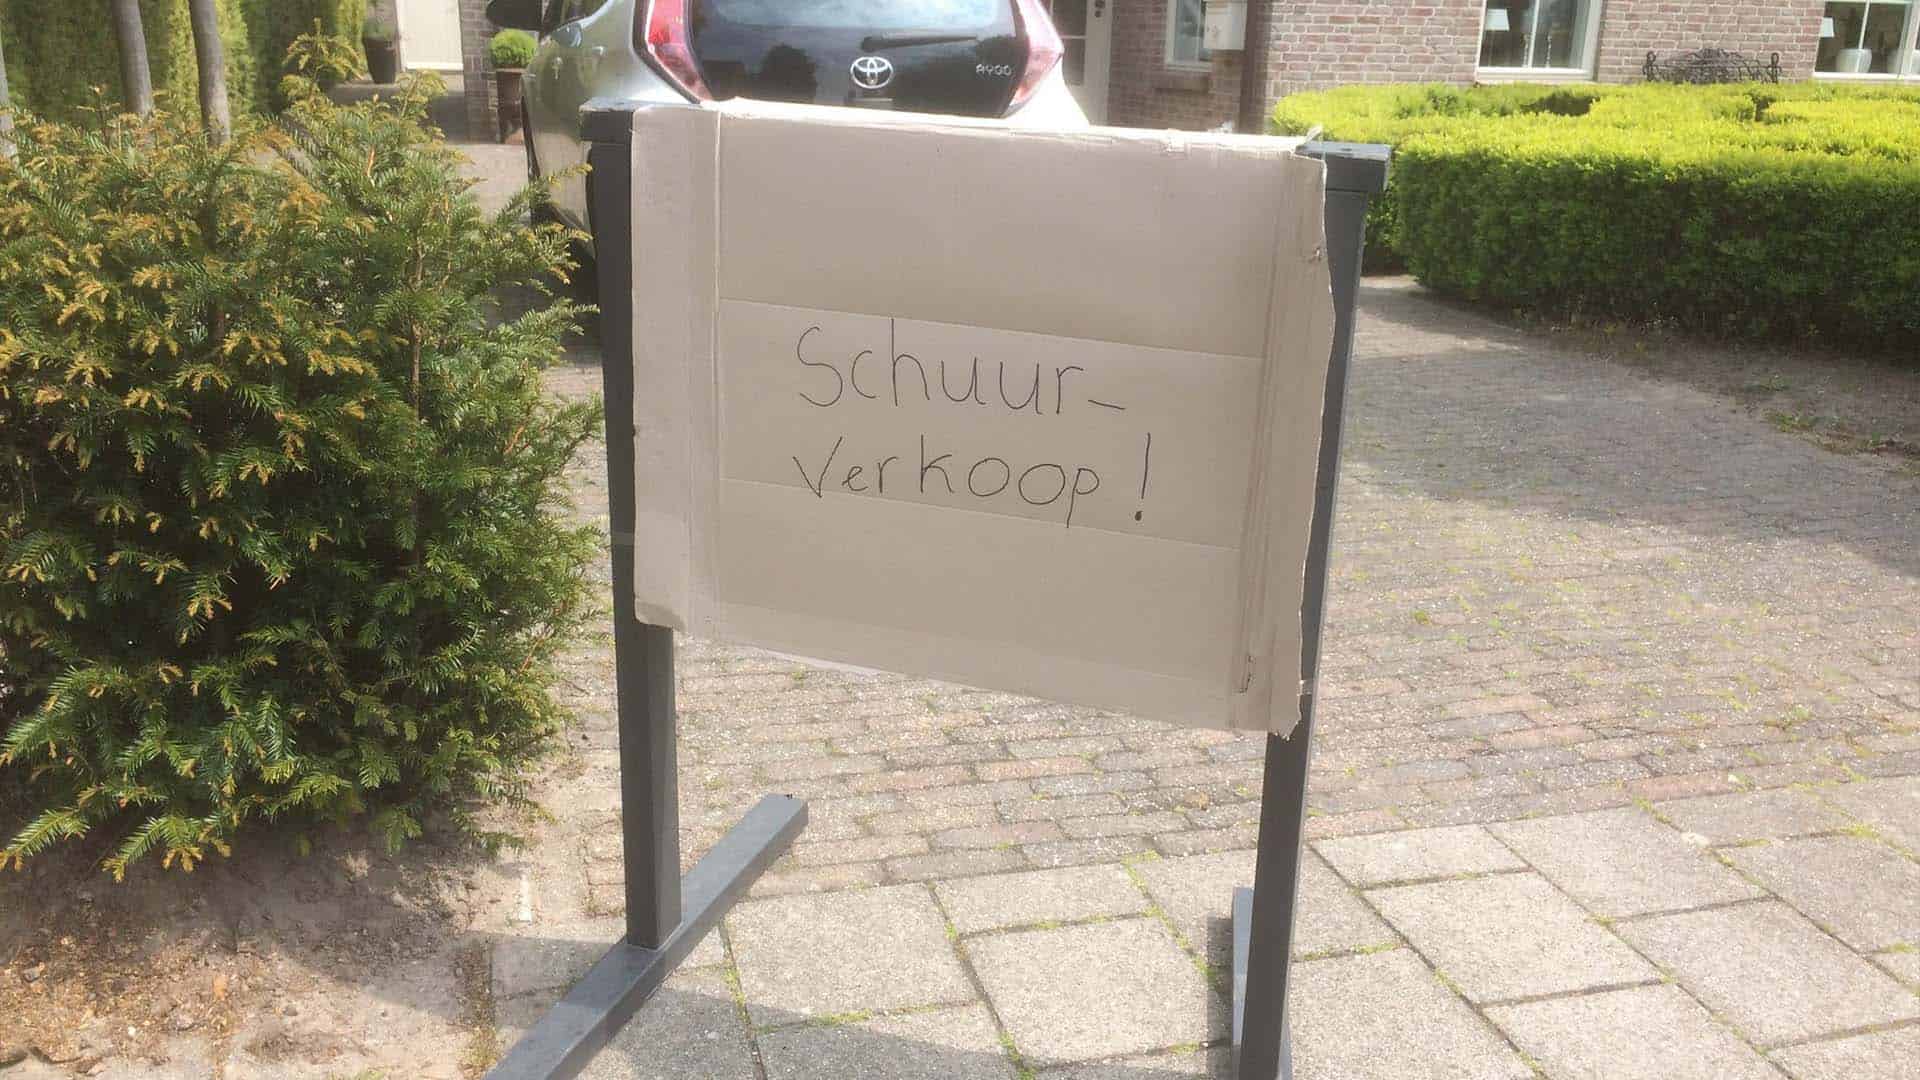 AYGO
Schuur-
verkoop!